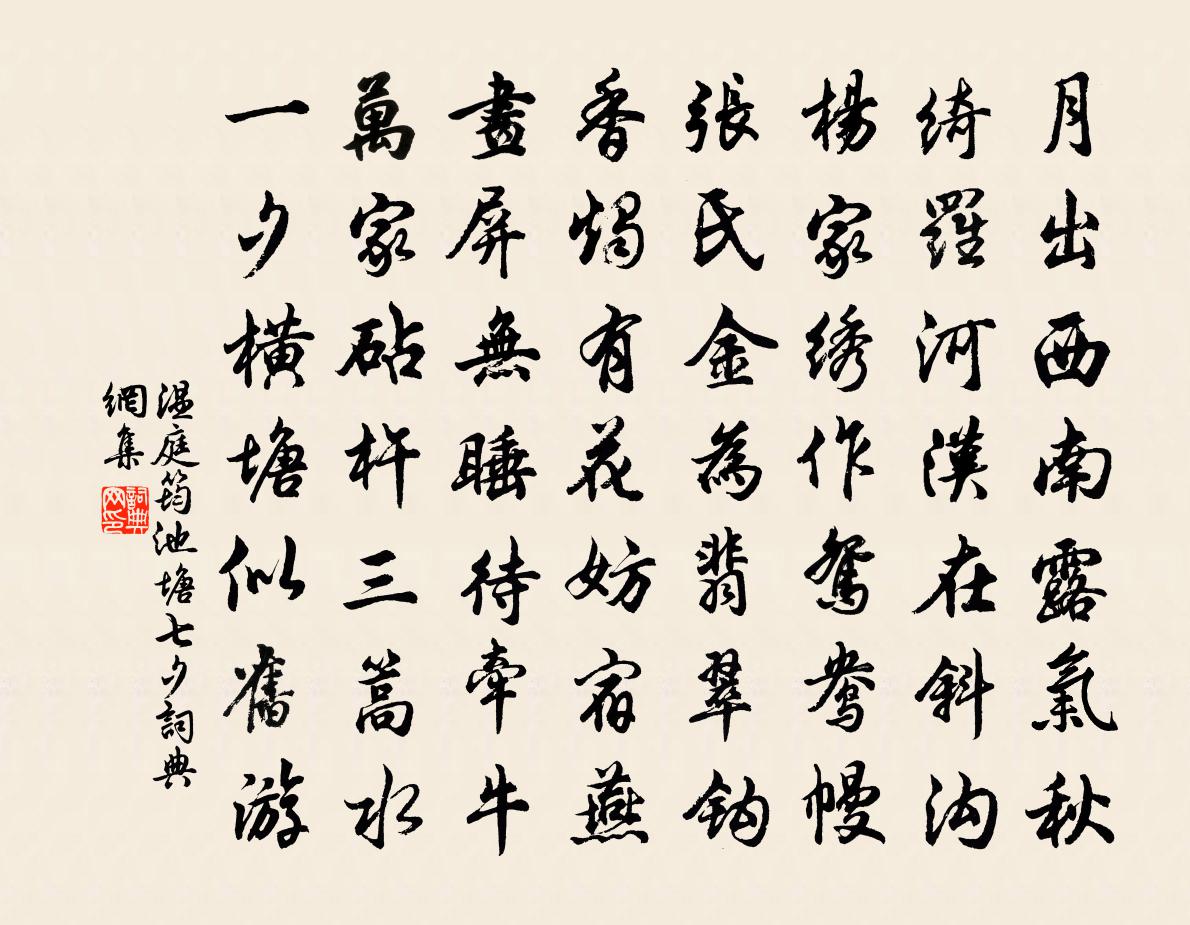 月出西南露氣秋
綺羅河漢在斜沟
楊家綉作鴛鴦幔
張氏金為翡翠鈎
香燭有花妨宿燕
畫屏無睡待牽牛
萬家砧杵三篙水
一夕橫塘似舊游
温庭筠池塘七夕詞典
網集
詞典網印